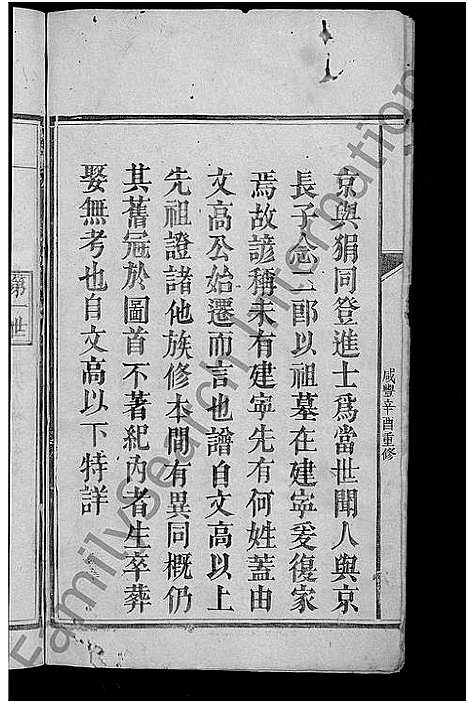 京與狷同登進士爲當世聞人與京
長子念二郎以祖墓在建寧爰復家
焉故諺稱未有建寧先有何姓蓋由
文高公始遷而言也譜自文高以上
先祖證諸他族修本間有異同概仍
其舊冠於圖首不著紀內者生卒葬
娶無考也自文高以下特詳
咸豐辛酉重修
第一世
FamilySearch International